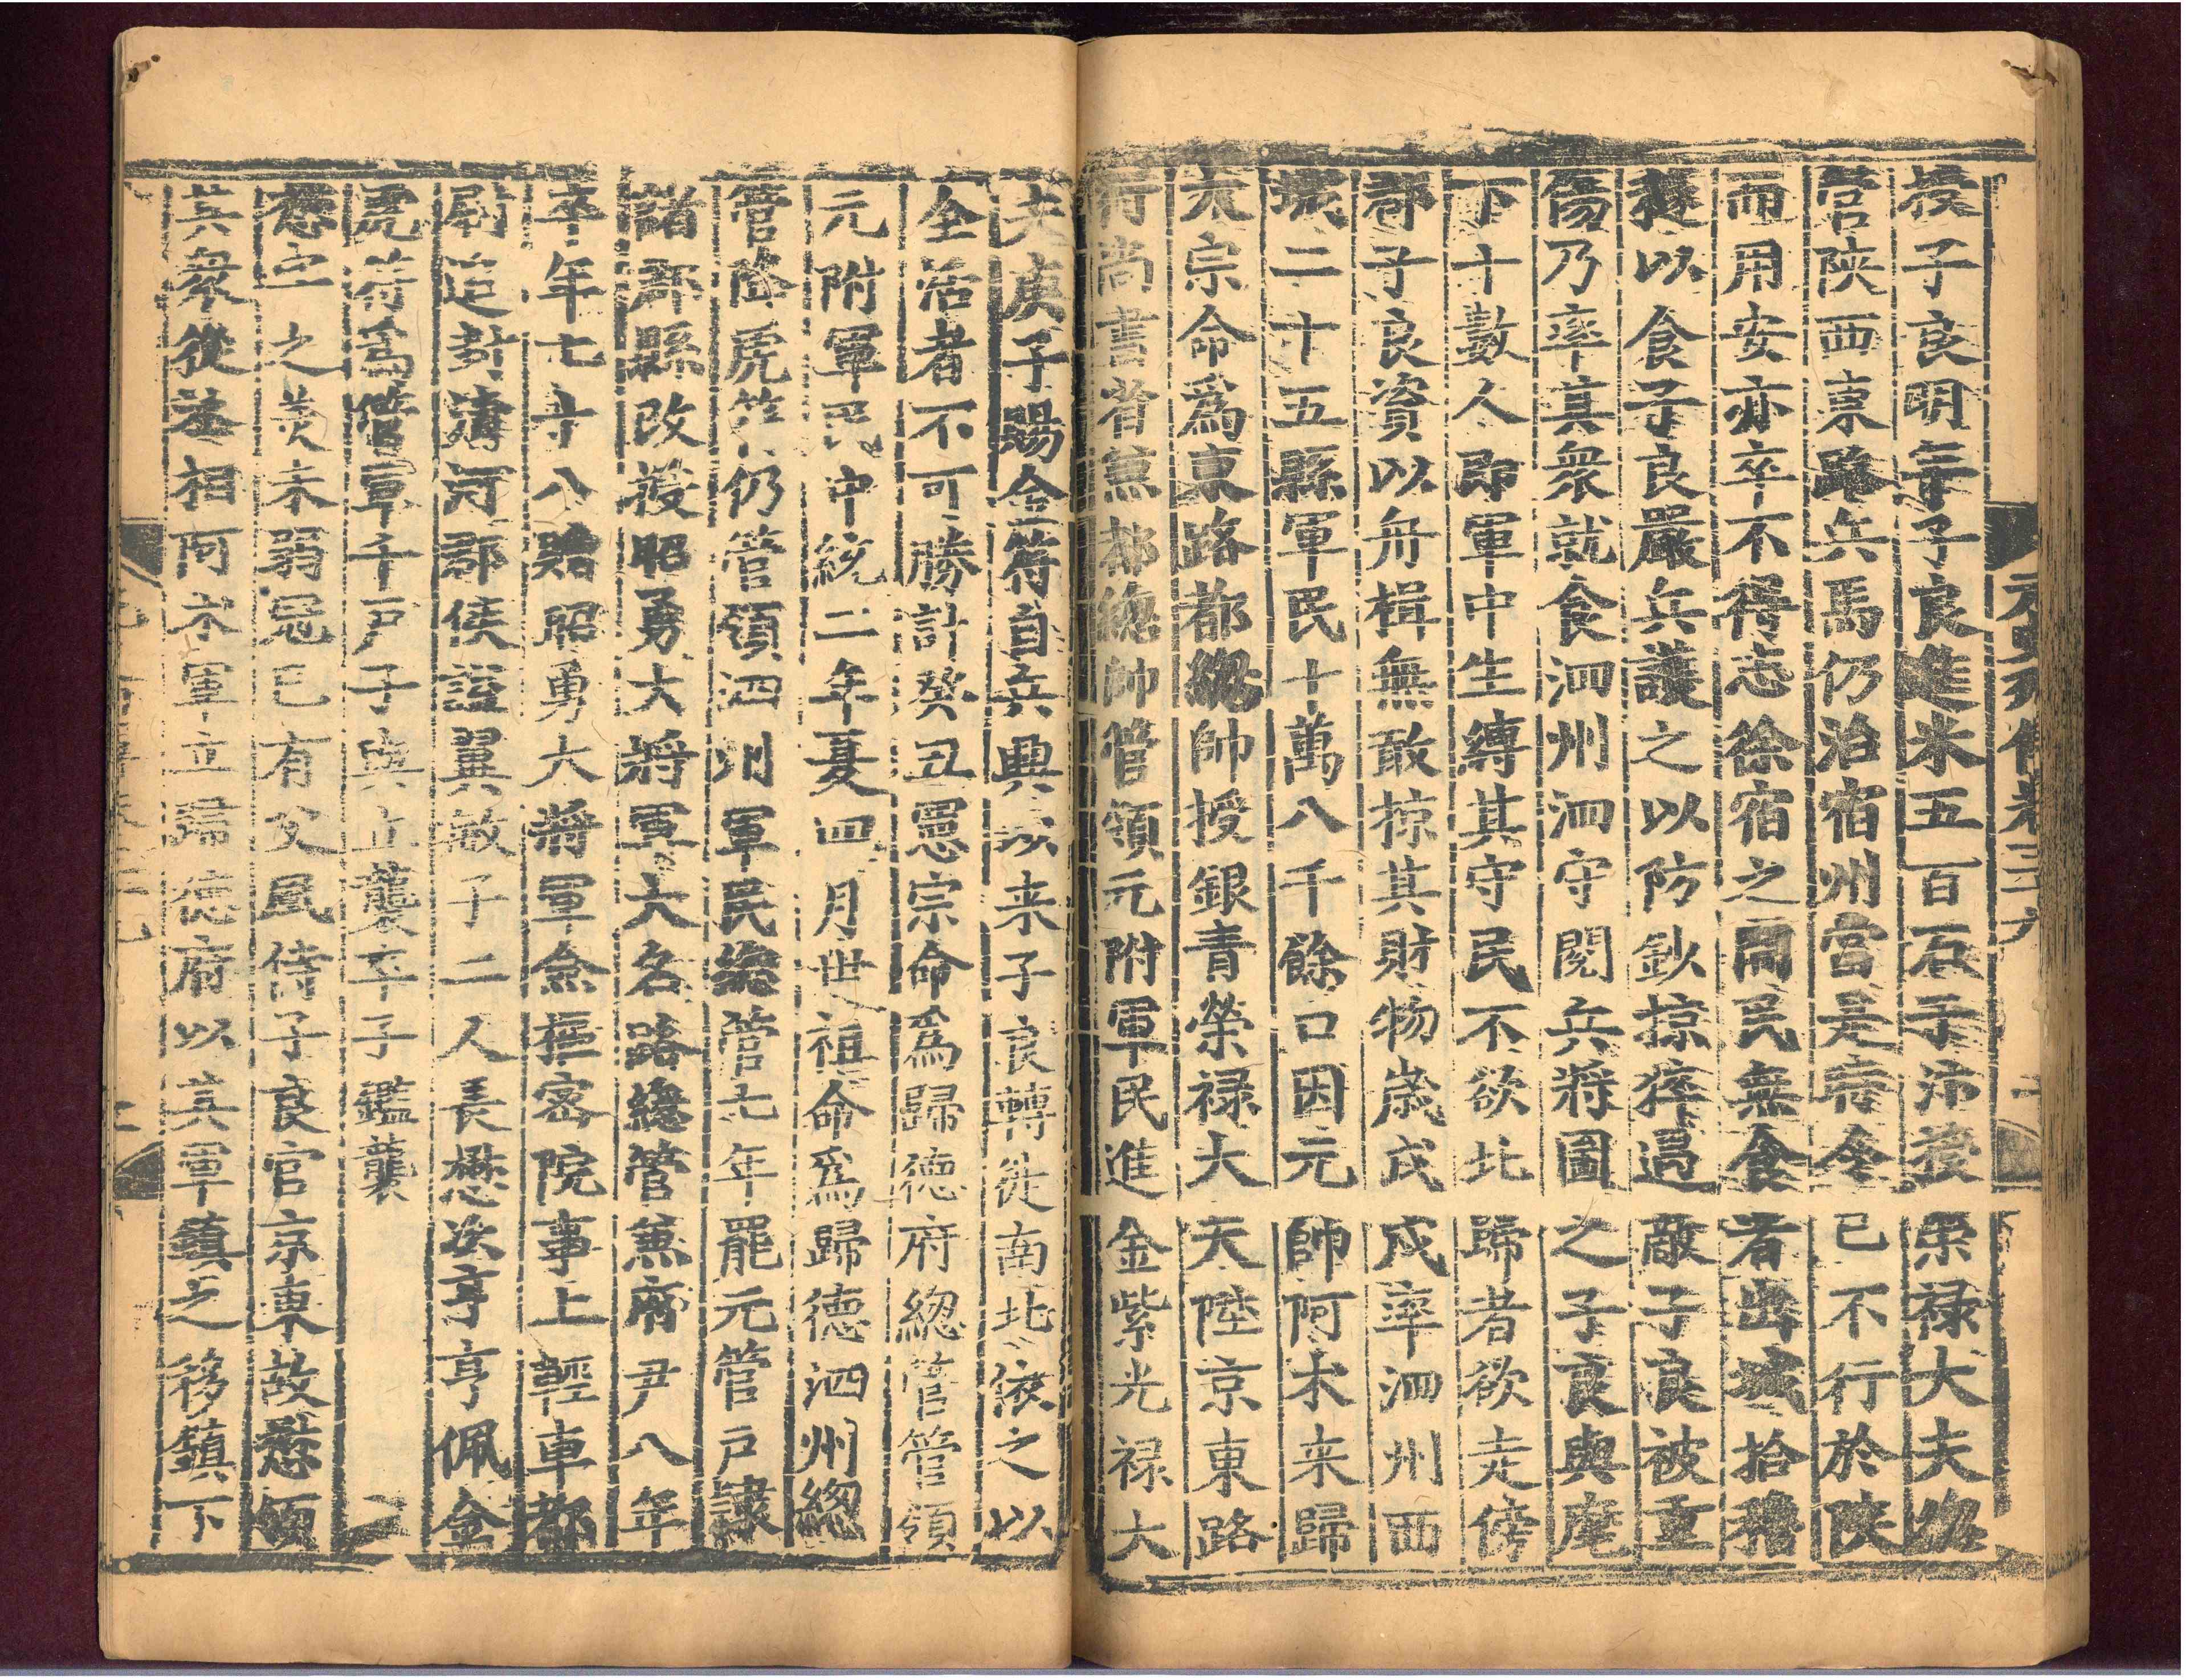 授子良明年子良進米五百石于汴授榮禄大夫總
管陜西東路兵馬仍治宿州當是時令已不行於陜
而用安亦卒不得志徐宿之間民無食者出城拾穭
𥝖以食子良嚴兵護之以防鈔掠猝遇敵子良被重
傷乃率其衆就食泗州泗守閱兵將圖之子良與麾
下十數人即軍中生縛其守民不欲北歸者欲走傍
郡子良資以舟楫無敢掠其財物歲戊戌率泗州西
城二十五縣軍民十萬八千餘口因元帥阿术来歸
太宗命爲東路都總帥授銀青榮禄大夫陞京東路
行尚書省兼都總帥管領元附軍民進金紫光禄大
夫庚子賜金符自兵興以来子良轉徙南北依之以
全活者不可勝計癸丑憲宗命爲歸德府總管管領
元附軍民中統二年夏四月世祖命爲歸德泗州總
管降虎符仍管領泗州軍民總管七年罷元管户隷
諸郡縣改授昭勇大將軍大名路總管兼府尹八年
卒年七十八贈昭勇大將軍僉樞密院事上輕車都
尉追封清河郡侯謚翼敏子二人長懋次亨亨佩金
虎符爲管軍千戸子與立襲卒子鑑襲
懋之之美未弱冠已有父風侍子良官京東故懋領
其衆從丞相阿术軍立歸德府以其軍鎮之移鎮下
元史列傳卷三十九